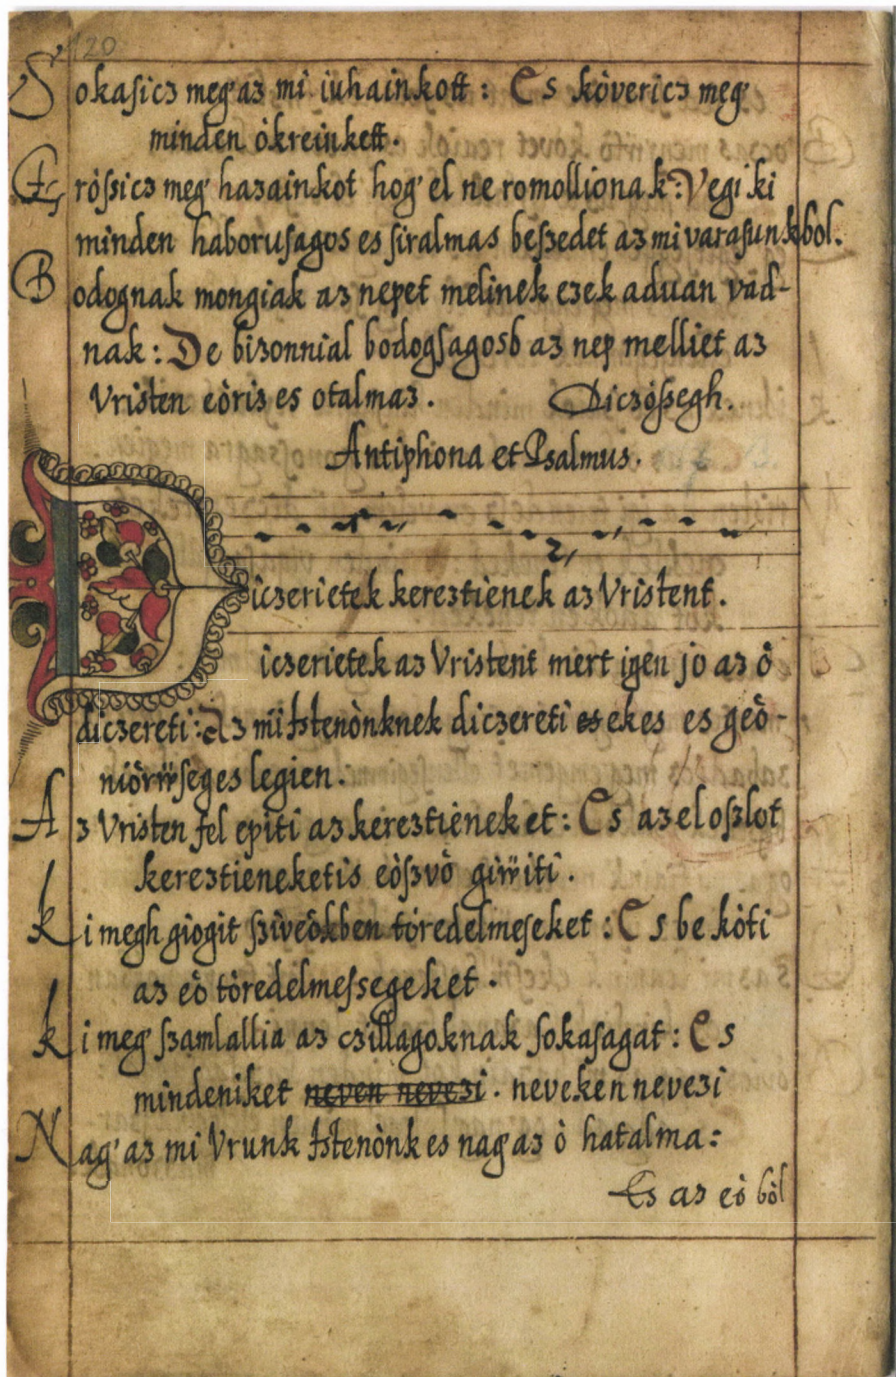 120
Sokasicz meg az mi iuhainkott : Es kòvericz meg
minden òkreinkett.
Eròssicz meg hazainkot hog' el ne romollionak : Vegi ki
minden haborusagos es siralmas beszedet az mi varasunkbol.
Bodognak mongiak az nepet melinek ezek aduan vad-
nak : De bizonnial bodogsagosb az nep melliet az
Vristen eòriz es otalmaz . Diczòssegh.
Antiphona et Psalmus.
Diczerietek kereztienek az Vristent .
iczerietek az Vristent mert igen jo az ò
diczereti : Az mi Istenònknek diczereti es ekes es geò-
niòrẅseges legien .
Az Vristen fel epiti az kereztièneket : Es az el oszlot
kereztieneketis eòszvò giẅiti .
ki megh giogit szìveòkben tòredelmeseket : Es be kòti
az eò tòredelmessegeket .
ki meg' szamlallia az czillagoknak sokasagat : Es
mindeniket neven nevezi . neveken nevezi
Nag' az mi Vrunk Istenònk es nag' az ò hatalma :
Es az eò bòl